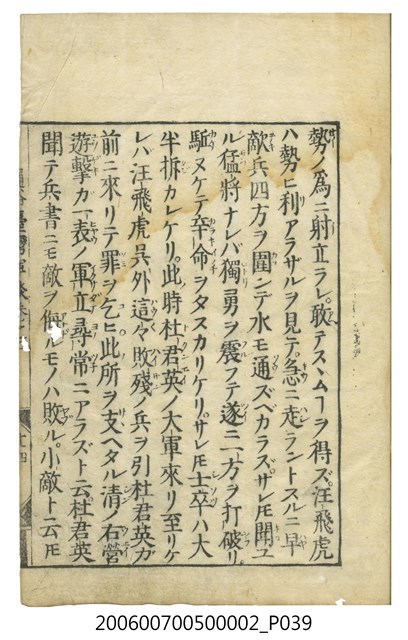 勢ノ爲ニ射立ラレ敢テスヽムヿヲ得ズ汪飛虎
ハ勢ヒ利アラザルヲ見テ急ニ走ラントスルニ早
敵兵四方ヲ圍ンテ水モ通ズベカラズサレ𪜈聞ユ
ル猛將ナレバ獨勇ヲ震フテ遂ニ一方ヲ打破リ
駈ヌケテ辛命ヲタスカリケリサレ𪜈士卒ハ大
半拆カレケリ此時杜君英ノ大軍來リ至リケ
レハ汪飛虎呉外這々敗殘ノ兵ヲ引杜君英ガ
前ニ來リテ罪ヲ乞ヒ此所ヲ支ヘタル清ノ右營
遊擊カ一表ノ軍立尋常ニアラズト云杜君英
聞テ兵書ニモ敵ヲ侮ルモノハ敗ル小敵ト云𪜈
臺灣軍談
十四
200600700500002_P039